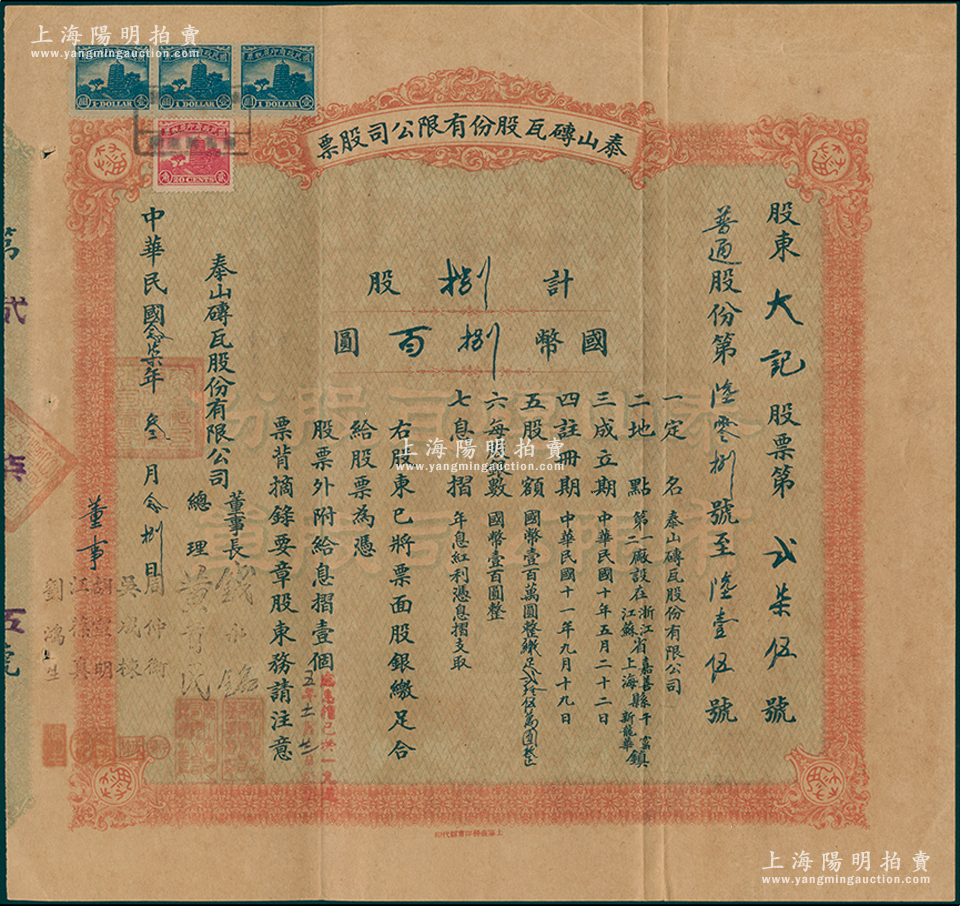 上海陽明拍賣
www.yangmingauction.com
泰山磚瓦股份有限公司股票
股東大記股票第弍柒伍號
普通股份第陸零捌號至陸壹伍號
計捌股
國幣捌百圓
一定名 泰山磚瓦股份有限公司
二地點 第一廠設在浙江省嘉善縣干窰鎮 第二廠設在江蘇上海縣新龍華
三成立期 中華民國十年五月二十二日
四註冊期 中華民國十一年九月十九日
五股額 國幣壹百萬圓整繳足
六每股數 國幣壹百圓整
七息摺 年息紅利憑息摺支取
右股東已將票面股銀繳足合
給股票為憑
股票外附給息摺壹個
票背摘錄要章股東務請注意
泰山磚瓦股份有限公司
董事長 錢永銘
總理 黃首民
董事
周仲衡
吳成
胡明
江真
劉鴻生
中華民國念柒年叁月念捌日
1 DOLLAR
1 DOLLAR
1 DOLLAR
20 CENTS
第貳柒五號
上海陽明拍賣
www.yangmingauction.com
上海陽明拍賣
www.yangmingauction.com